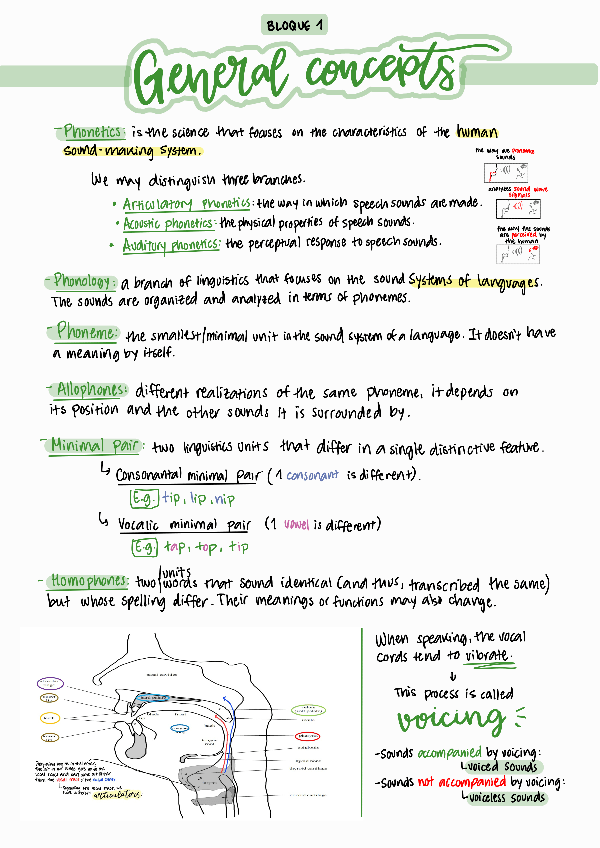 BLOQUE 1
General concepts
- Phonetics: is the science that focuses on the characteristics of the human
sound-making system.
We may distinguish three branches.
• Articulatory phonetics: the way in which speech sounds are made.
• Acoustic phonetics: the physical properties of speech sounds.
• Auditory phonetics: the perceptual response to speech sounds.
the way we produce
sounds
analyzes sound wave
signals
the way the sounds
are perceived by
the human
- Phonology: a branch of linguistics that focuses on the sound systems of languages.
The sounds are organized and analyzed in terms of phonemes.
- Phoneme: the smallest/minimal unit in the sound system of a language. It doesn't have
a meaning by itself.
- Allophones: different realizations of the same phoneme, it depends on
its position and the other sounds it is surrounded by.
- Minimal pair: two linguistics units that differ in a single distinctive feature.
↳ Consonantal minimal pair (1 consonant is different).
E.g. tip, lip, nip
↳ Vocalic minimal pair (1 vowel is different)
E.g. tap, top, tip
- Homophones: two/words that sound identical (and thus, transcribed the same)
units
but whose spelling differ. Their meanings or functions may also change.
nasal cavities
articulators
When speaking, the vocal
cords tend to vibrate.
↓
This process is called
voicing
- Sounds accompanied by voicing:
↳ voiced sounds
- Sounds not accompanied by voicing:
↳ voiceless sounds